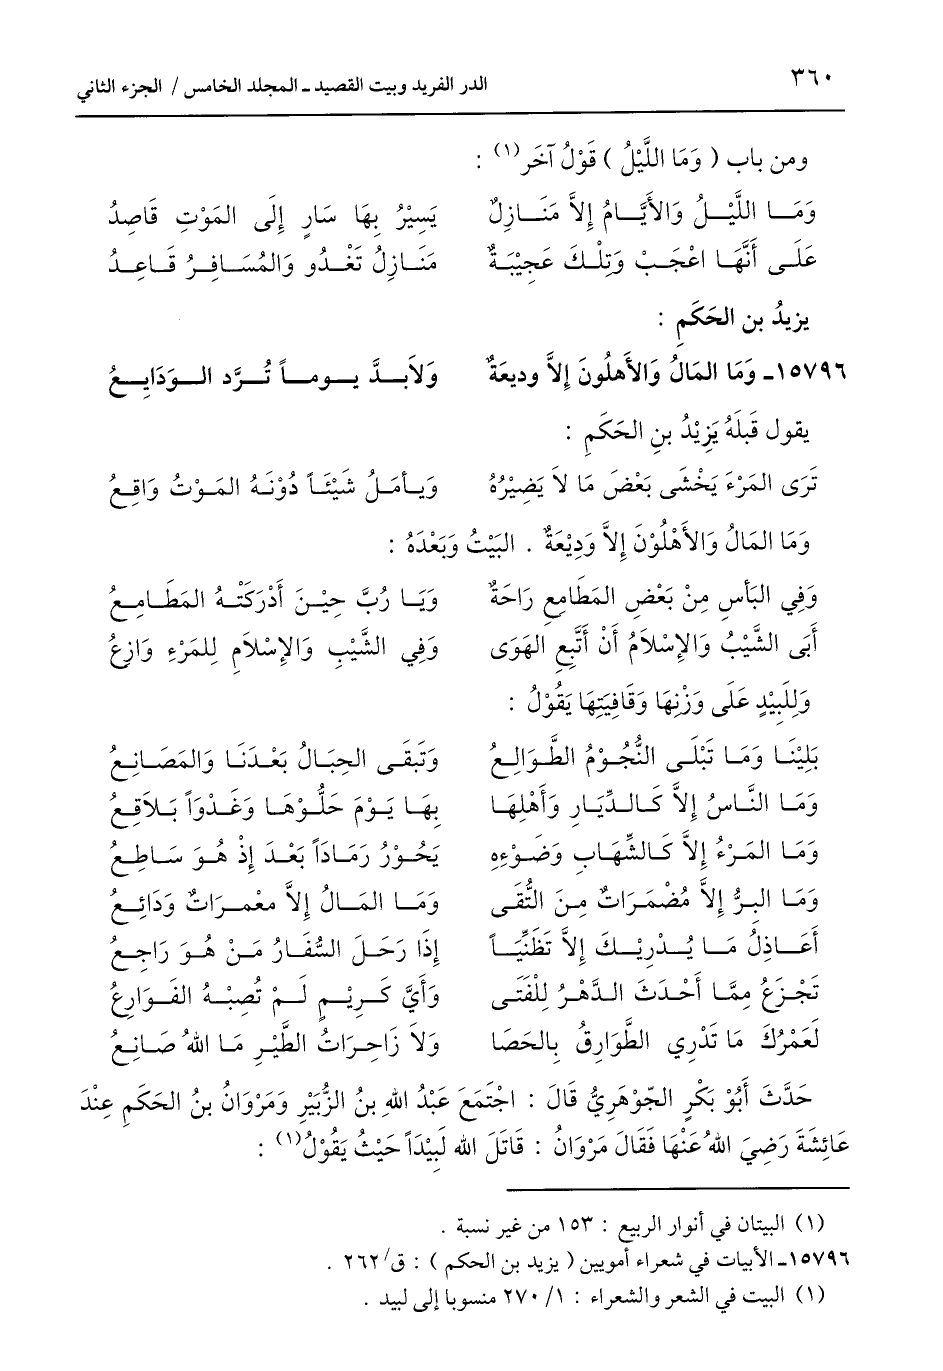 ٣٦٠ الدر الفريد وبيت القصيد ـ المجلد الخامس / الجزء الثاني
ومن باب ( وَمَا اللَّيْلُ ) قَوْلُ آخَر(١) :
وَمَــا اللَّيْــلُ وَالأَيَّــامُ إِلاَّ مَنَــازِلٌ يَسِيْرُ بِهَا سَارٍ إِلَى المَوْتِ قَاصِدُ
عَلَــى أَنَّهَا اعْجَـبْ وَتِلْـكَ عَجِيْبَةٌ مَنَـازِلُ تَغْـدُو وَالمُسَـافِـرُ قَـاعِـدُ
يزيدُ بن الحَكَمِ :
١٥٧٩٦ـ وَمَا المَالُ وَالأَهلُونَ إِلاَّ وديعَةٌ وَلاَبــدَّ يــومــاً تُــرَّد الــوَدَايِــعُ
يقول قَبلَهُ يَزِيْدُ بنِ الحَكَمِ :
تَرَى المَرْءَ يَخْشَى بَعْضَ مَا لاَ يَضِيْرُهُ وَيـأمَـلُ شَيْئـاً دُوْنَـهُ المَـوْتُ وَاقِـعُ
وَمَا المَالُ وَالأَهْلُوْنَ إِلاَّ وَدِيْعَةٌ . البَيْتُ وَبَعْدَهُ :
وَفِي البَأسِ مِنْ بَعْضِ المَطَامِعِ رَاحَةٌ وَيَـا رُبَّ حِيْـنَ أَدْرَكَتْـهُ المَطَـامِـعُ
أَبَى الشَّيْبُ وَالإِسْلاَمُ أَنْ أَتَّبِعِ الهَوَى وَفِي الشَّيْبِ وَالإِسْلاَمِ لِلمَرْءِ وَازِعُ
وَلِلَبِيْدٍ عَلَى وَزْنِهَا وَقَافِيَتِهَا يَقُوْلُ :
بَلِيْنَـا وَمَـا تَبْلَـى النُّجُـوْمُ الطَّـوَالِـعُ وَتَبقَـى الجِبَـالُ بَعْـدَنَـا وَالمَصَـانِـعُ
وَمَـا النَّـاسُ إِلاَّ كَـالـدِّيَـارِ وَأَهْلِهَـا بِهَـا يَـوْمَ حَلُّـوْهَـا وَغَـدْواً بَـلاَقِـعُ
وَمَـا المَـرْءُ إِلاَّ كَـالشِّهَـابِ وَضَـوْءِهِ يَحُـوْرُ رَمَـاداً بَعْـدَ إِذْ هُـوَ سَـاطِـعُ
وَمَـا البِـرُّ إِلاَّ مُضْمَـرَاتٌ مِـنَ التُّقَـى وَمَــا المَــالُ إِلاَّ معْمــرَاتٌ وَدَائِــعُ
أَعَـاذِلُ مَـا يُـدْرِيْـكَ إِلاَّ تَظَنِّيَـاً إِذَا رَحَـلَ السُّفَـارُ مَـنْ هُـوَ رَاجِـعُ
تَجْـزَعُ مِمَّـا أَحْـدَثَ الـدَّهْـرُ لِلْفَتَـى وَأَيُّ كَـرِيْـمٍ لَـمْ تُصِبْـهُ القَـوَارِعُ
لَعَمْرُكَ مَا تَدْرِي الطَّوَارِقُ بِالحَصَا وَلاَ زَاجِـرَاتُ الطَّيْـرِ مَـا اللهُ صَـانِـعُ
حَدَّثَ أَبُوْ بَكْرٍ الجّوْهَرِيُّ قَالَ : اجْتَمَعَ عَبْدُ اللهِ بنُ الزُّبَيْرِ وَمَرْوَانُ بنُ الحَكَمِ عِنْدَ
عَائِشَةَ رَضِيَ اللهُ عَنْهَا فَقَالَ مَرْوَانُ : قَاتَلَ الله لَبِيْدَاً حَيْثُ يَقُوْلُ(١) :
(١) البيتان في أنوار الربيع : ١٥٣ من غير نسبة .
١٥٧٩٦ـ الأبيات في شعراء أمويين ( يزيد بن الحكم ) : ق/ ٢٦٢ .
(١) البيت في الشعر والشعراء : ١/ ٢٧٠ منسوبا إلى لبيد .